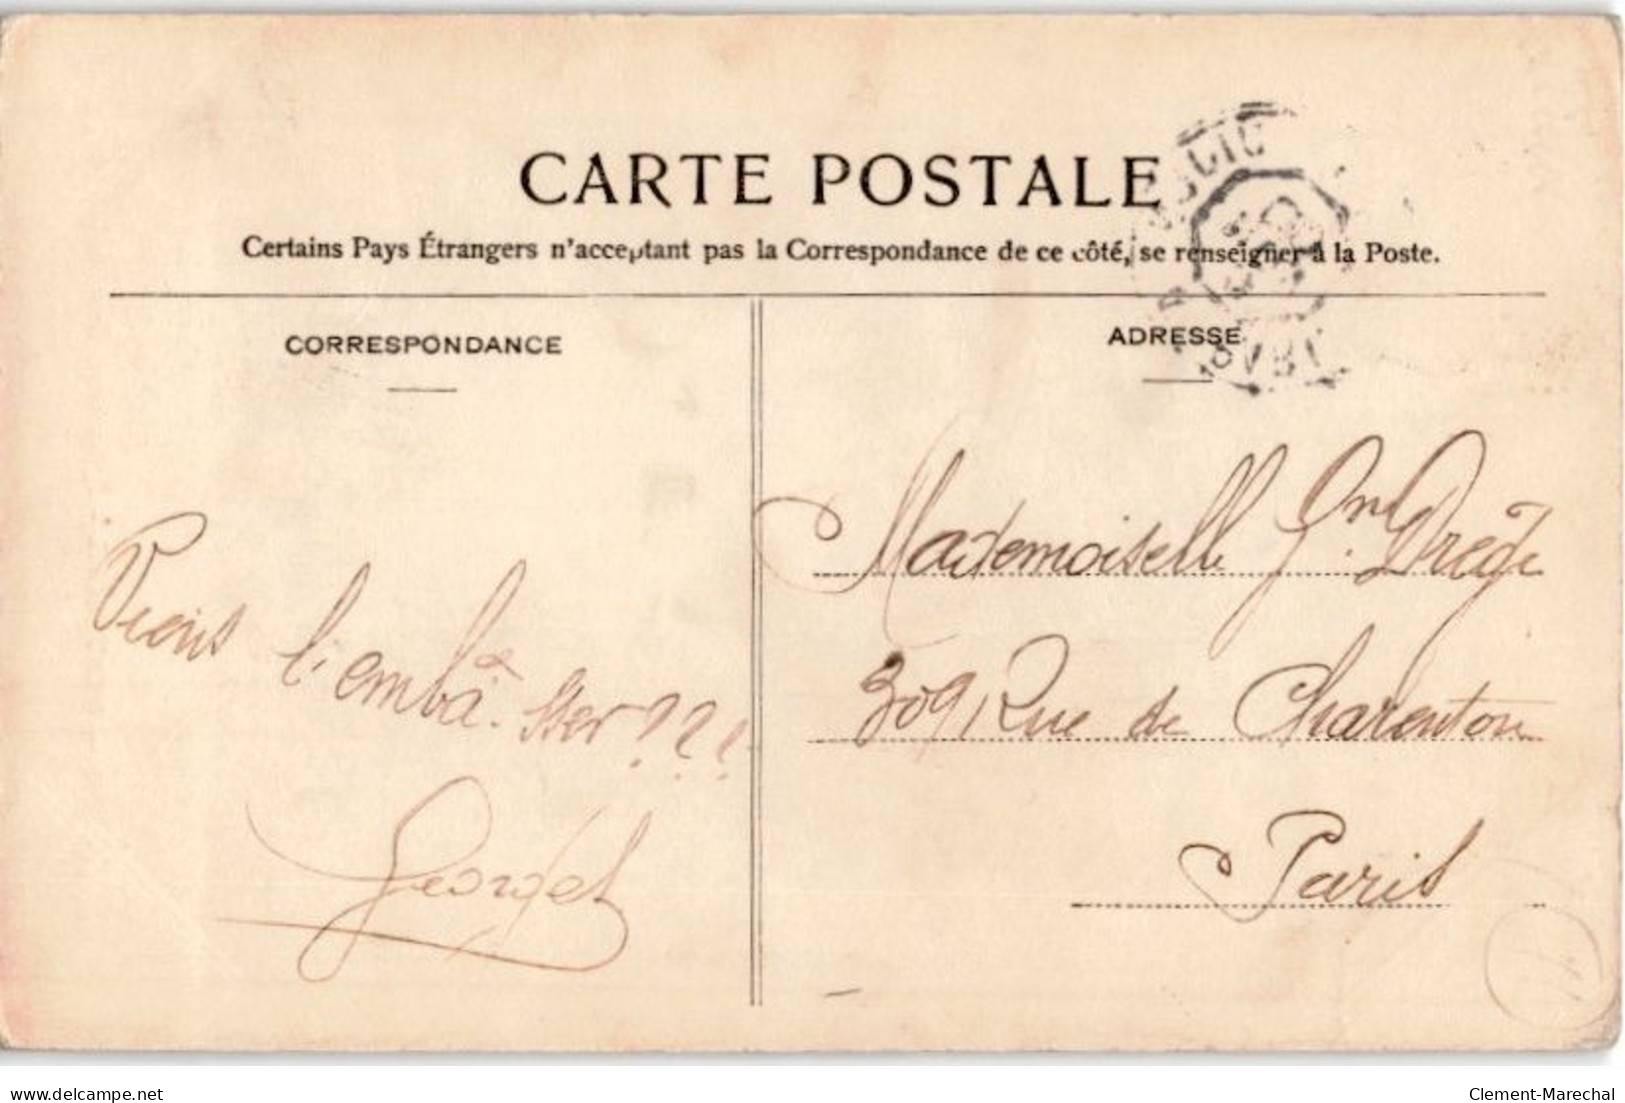 CARTE POSTALE
Certains Pays Étrangers n'acceptant pas la Correspondance de ce côté, se renseigner à la Poste.
CORRESPONDANCE
ADRESSE
Viens l'embâ-ter ? ? !
Georget
Mademoiselle Gn. Drège
309, Rue de Charenton
Paris
www.delcampe.net
Clement-Marechal